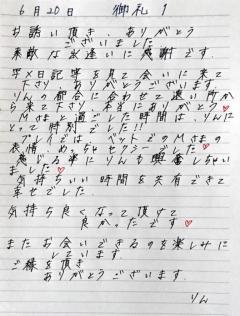 6月20日 御礼1
お誘い頂き、ありがとう
ございました
素敵な出逢いに感謝です。
写メ日記等を見て会いに来て
下さり、ありがとうございます
りんの都合に合わせて遠い所か
ら来て下さり、本当にありがとう♡
Mさまと過ごした時間は、りんに
とって特別でした!!
プレイでは、ベットでのMさまの
表情、めっちゃセクシーでした♡
感じる姿にりんも興奮しちゃい
ました♡
気持ちいい時間を共有できて
幸せでした。
気持ち良くなって頂けて
良かったです♡
またお会いできるのを楽しみに
しています
ご縁を頂き
ありがとうございます。
りん